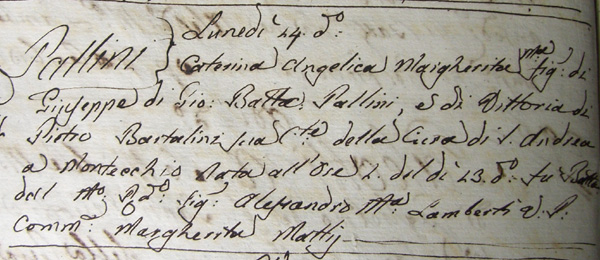 Pallini } Lunedì 24. dº:
Caterina Angelica Margherita figª: di
Giuseppe di Gio: Batta: Pallini, e di Vittoria di
Pietro Bartalini sua Cte: della Cura di S. Andrea
a Montecchio nata all'ore 2. del dì 23. dº: fu Batta
dal Mº: Rdº: Sigʳ: Alesandro Mª: Lamberti V. P:
Comᵉ: Margherita Mattij